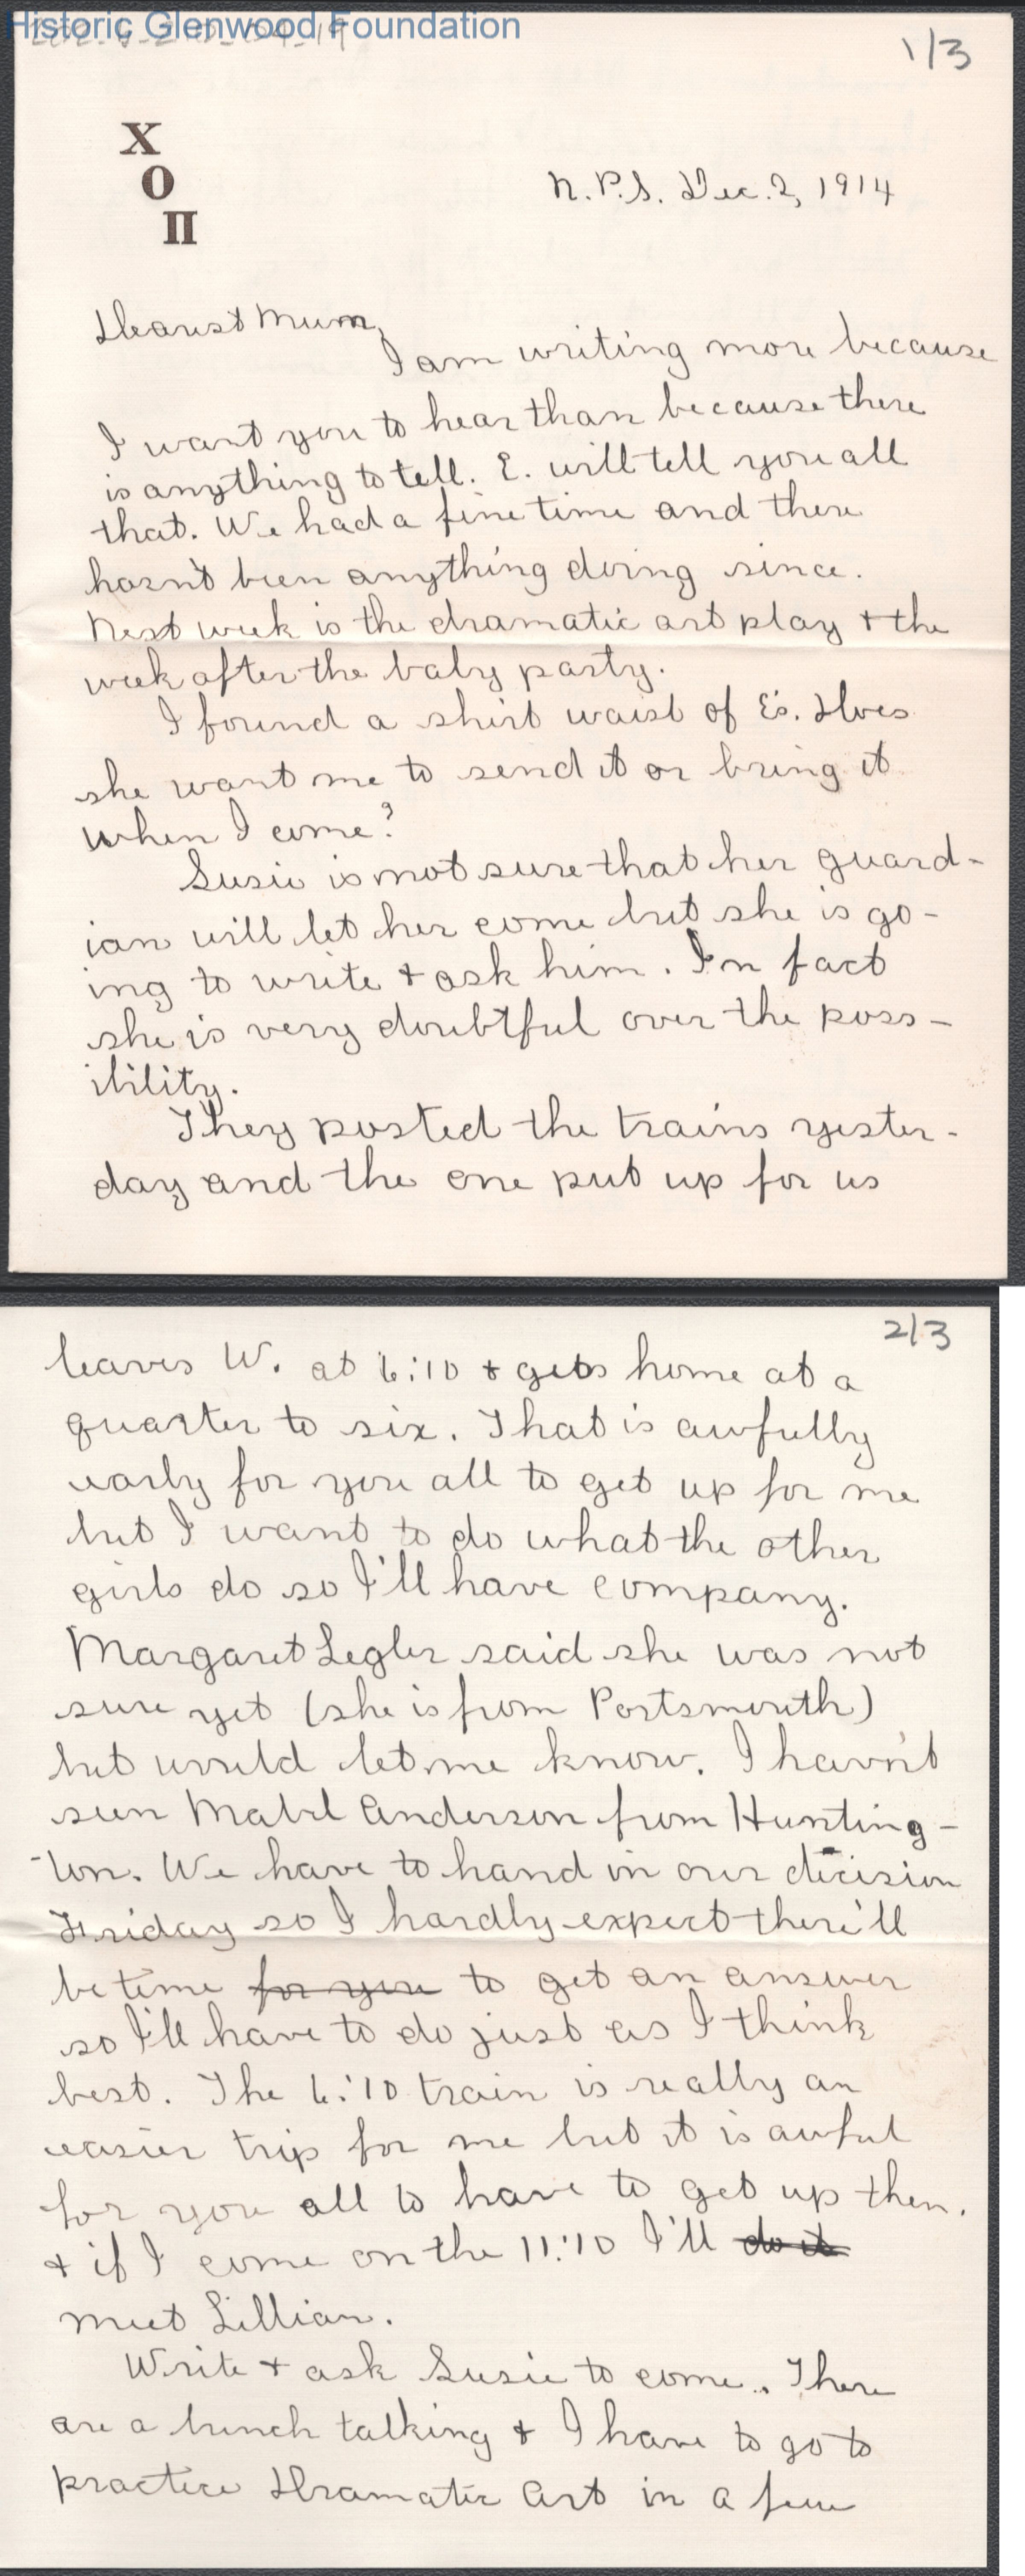 Historic Glenwood Foundation
1/3
X
O
II
N.P.S. Dec. 2, 1914
Dearest Mum,
I am writing more because
I want you to hear than because there
is anything to tell. E. will tell you all
that. We had a fine time and there
hasn't been anything doing since.
Next week is the dramatic art play + the
week after the baby party.
I found a shirt waist of E's. Does
she want me to send it or bring it
when I come?
Susie is not sure that her guard-
ian will let her come but she is go-
ing to write + ask him. In fact
she is very doubtful over the poss-
ibility.
They posted the trains yester-
day and the one put up for us
2/3
leaves W. at 6:10 + gets home at a
quarter to six. That is awfully
early for you all to get up for me
but I want to do what the other
girls do so I'll have company.
Margaret Legler said she was not
sure yet (she is from Portsmouth)
but would let me know. I havn't
seen Mabel Anderson from Hunting-
-ton. We have to hand in our decision
Friday so I hardly expect there'll
be time for you to get an answer
so I'll have to do just as I think
best. The 6:10 train is really an
easier trip for me but it is awful
for you all to have to get up then.
+ if I come on the 11:10 I'll do it
meet Lillian.
Write + ask Susie to come. There
are a bunch talking + I have to go to
practice Dramatic Art in a few